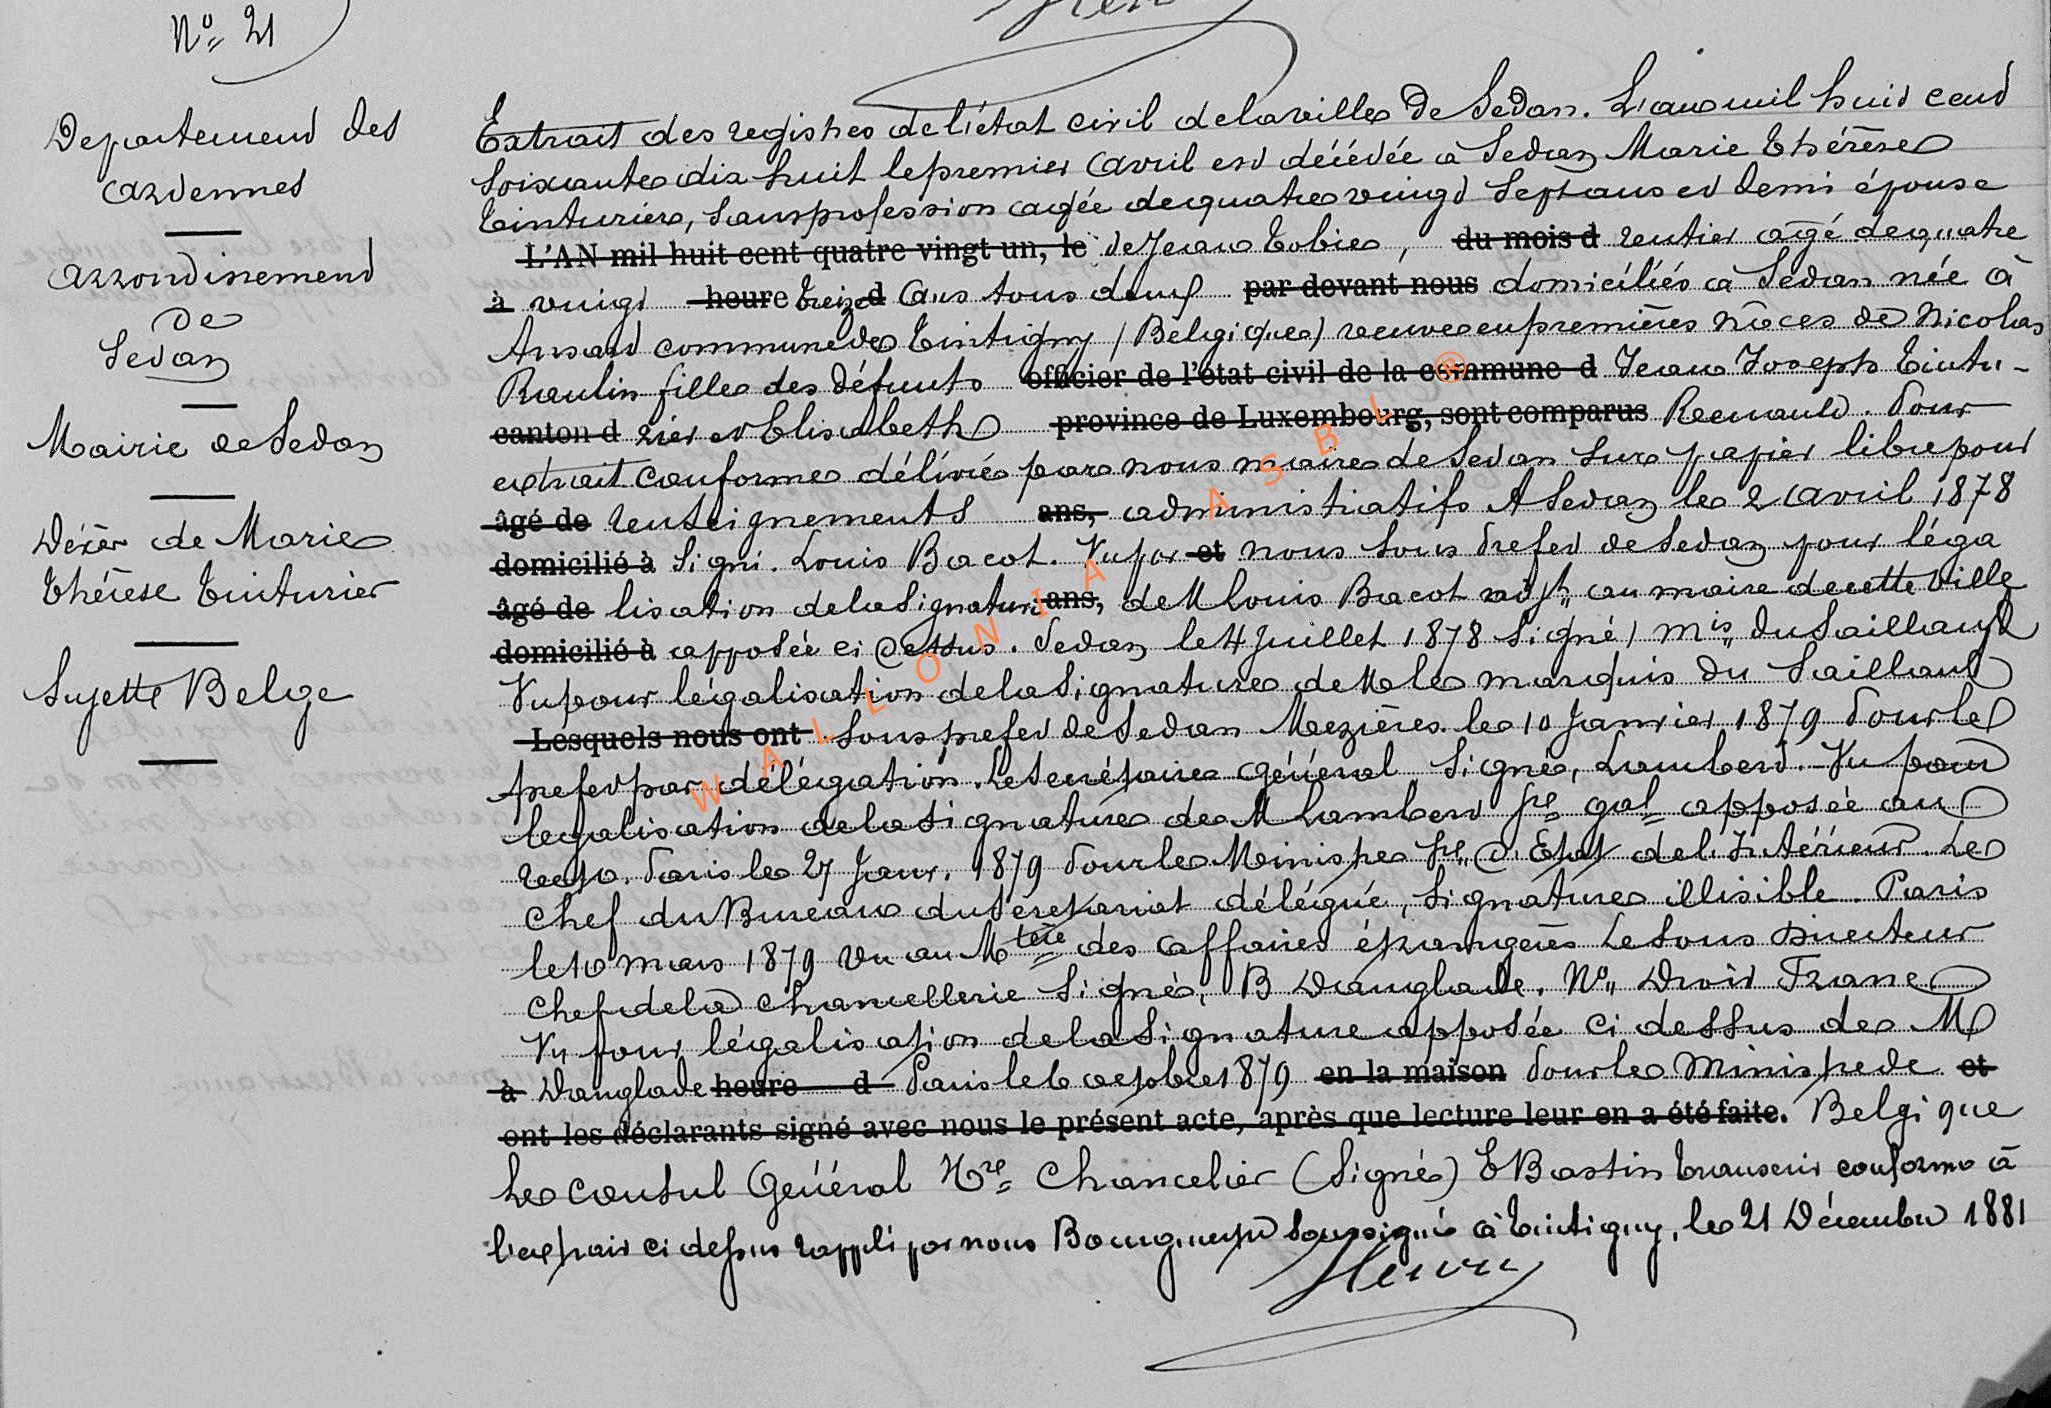 Nº 21
Departement des
Ardennes
Arrondissement
de
Sedan
Mairie de Sedan
Décès de Marie
Thérèse Tinturier
Sujette Belge
Extrait des registres de l'état civil de la ville de Sedan. L'an mil huit cent
soixante dix huit le premier Avril est décédée à Sedan Marie Thérèse
Tinturier, sans profession agée de quatre vingt sept ans et demi épouse
L'AN mil huit cent quatre vingt un, le de Jean Tobie, du mois d rentier agé de quatre
à vingt heure treize d ans tous deux par devant nous domiciliés à Sedan née à
Ansart commune de Tintigny (Belgique) veuve en premières noces de Nicolas
Raulin fille des défunts officier de l'état civil de la commune d Jean Joseph Tintu-
canton d rier et Elisabeth province de Luxembourg, sont comparus Renauld. Pour
extrait conforme délivré par nous maire de Sedan sur papier libre pour
âgé de renseignements ans, administratifs A Sedan le 2 Avril 1878
domicilié à Signé. Louis Bacot. Vu par et nous Sous Prefet de Sedan pour léga
âgé de lisation de la signature ans, de M Louis Bacot adjt au maire de cette ville
domicilié à apposée ci dessus. Sedan le 4 Juillet 1878 Signé) Mis du Saillant
Vu pour légalisation de la signature de M le marquis du Saillant
Lesquels nous ont Sous prefet de Sedan Mezières le 10 Janvier 1879 Pour le
prefet par délégation. Le Secrétaire général Signé, Lambert. Vu pour
legalisation de la signature de M Lambert Sre gal apposée au
recto. Paris le 27 Janv. 1879 Pour le Ministre Sre d'Etat de l'Intérieur. Le
Chef du Bureau du Secretariat délégué, Signature illisible. Paris
le 10 mars 1879 Vu au Mtère des affaires étrangères Le Sous Directeur
Chef de la Chancellerie Signé, B Danglade. Nº Droit Franc
Vu pour légalisation de la signature apposée ci dessus de M
à Danglade heure d Paris le 6 octobre 1879 en la maison Pour le Ministre de et
ont les déclarants signé avec nous le présent acte, après que lecture leur en a été faite. Belgique
Le Consul Général Hre Chancelier (Signé) E Bastin Transcrit conforme à
l'extrait ci dessus rappelé par nous Bourgmestre soussigné à Tintigny, le 21 Décembre 1881
Henry
WALLONIA ASBL ®